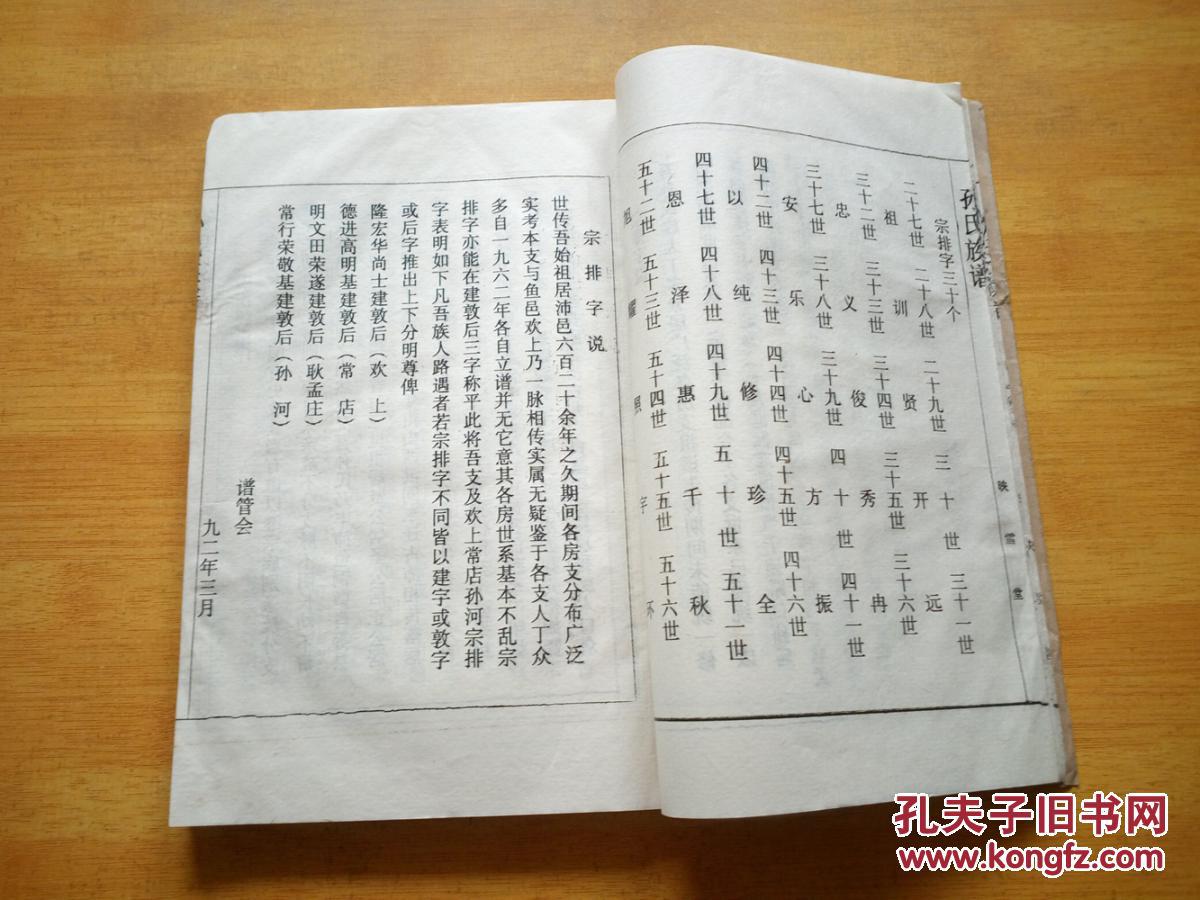 孙氏族谱
映雪堂
宗排字三十个
二十七世 二十八世 二十九世 三十世 三十一世
祖 训 贤 开 远
三十二世 三十三世 三十四世 三十五世 三十六世
忠 义 俊 秀 冉
三十七世 三十八世 三十九世 四十世 四十一世
安 乐 心 方 振
四十二世 四十三世 四十四世 四十五世 四十六世
以 纯 修 珍 全
四十七世 四十八世 四十九世 五十世 五十一世
恩 泽 惠 千 秋
五十二世 五十三世 五十四世 五十五世 五十六世
耀 照 宇 环
宗排字说
世传吾始祖居沛邑六百二十余年之久期间各房支分布广泛
实考本支与鱼邑欢上乃一脉相传实属无疑鉴于各支人丁众
多自一九六二年各自立谱并无它意其各房世系基本不乱宗
排字亦能在建敦后三字称平此将吾支及欢上常店孙河宗排
字表明如下凡吾族人路遇者若宗排字不同皆以建字或敦字
或后字推出上下分明尊俾
隆宏华尚士建敦后(欢上)
德进高明基建敦后(常店)
明文田荣遂建敦后(耿孟庄)
常行荣敬基建敦后(孙河)
谱管会
九二年三月
孔夫子旧书网
www.kongfz.com